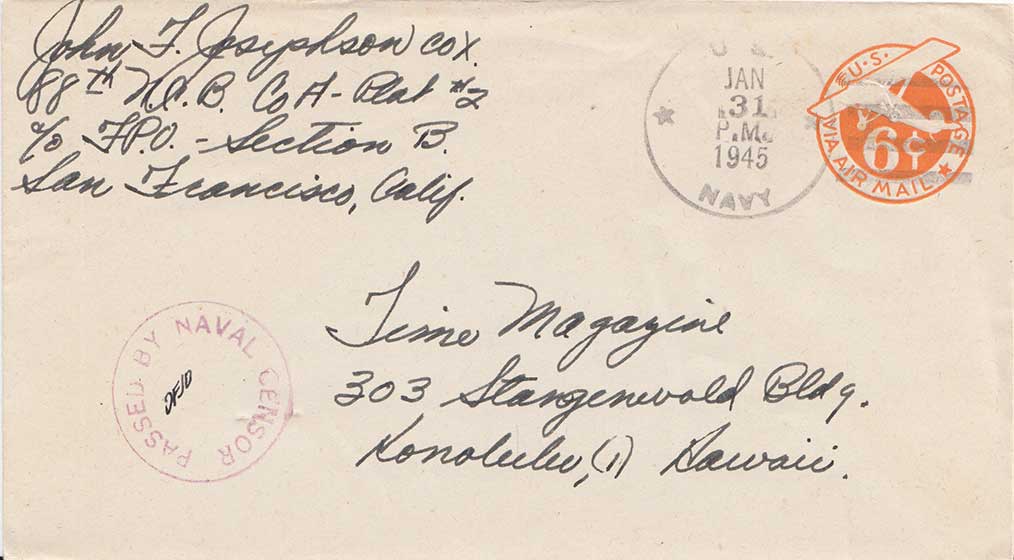 John F. Josephson cox.
88th N.C.B. Co A - Plat #2
c/o F.P.O. - Section B.
San Francisco, Calif.
JAN
31
P.M.
1945
NAVY
U.S. POSTAGE
6¢
VIA AIR MAIL
PASSED BY NAVAL CENSOR
Time Magazine
303 Stangenwald Bldg.
Honolulu, (1) Hawaii.